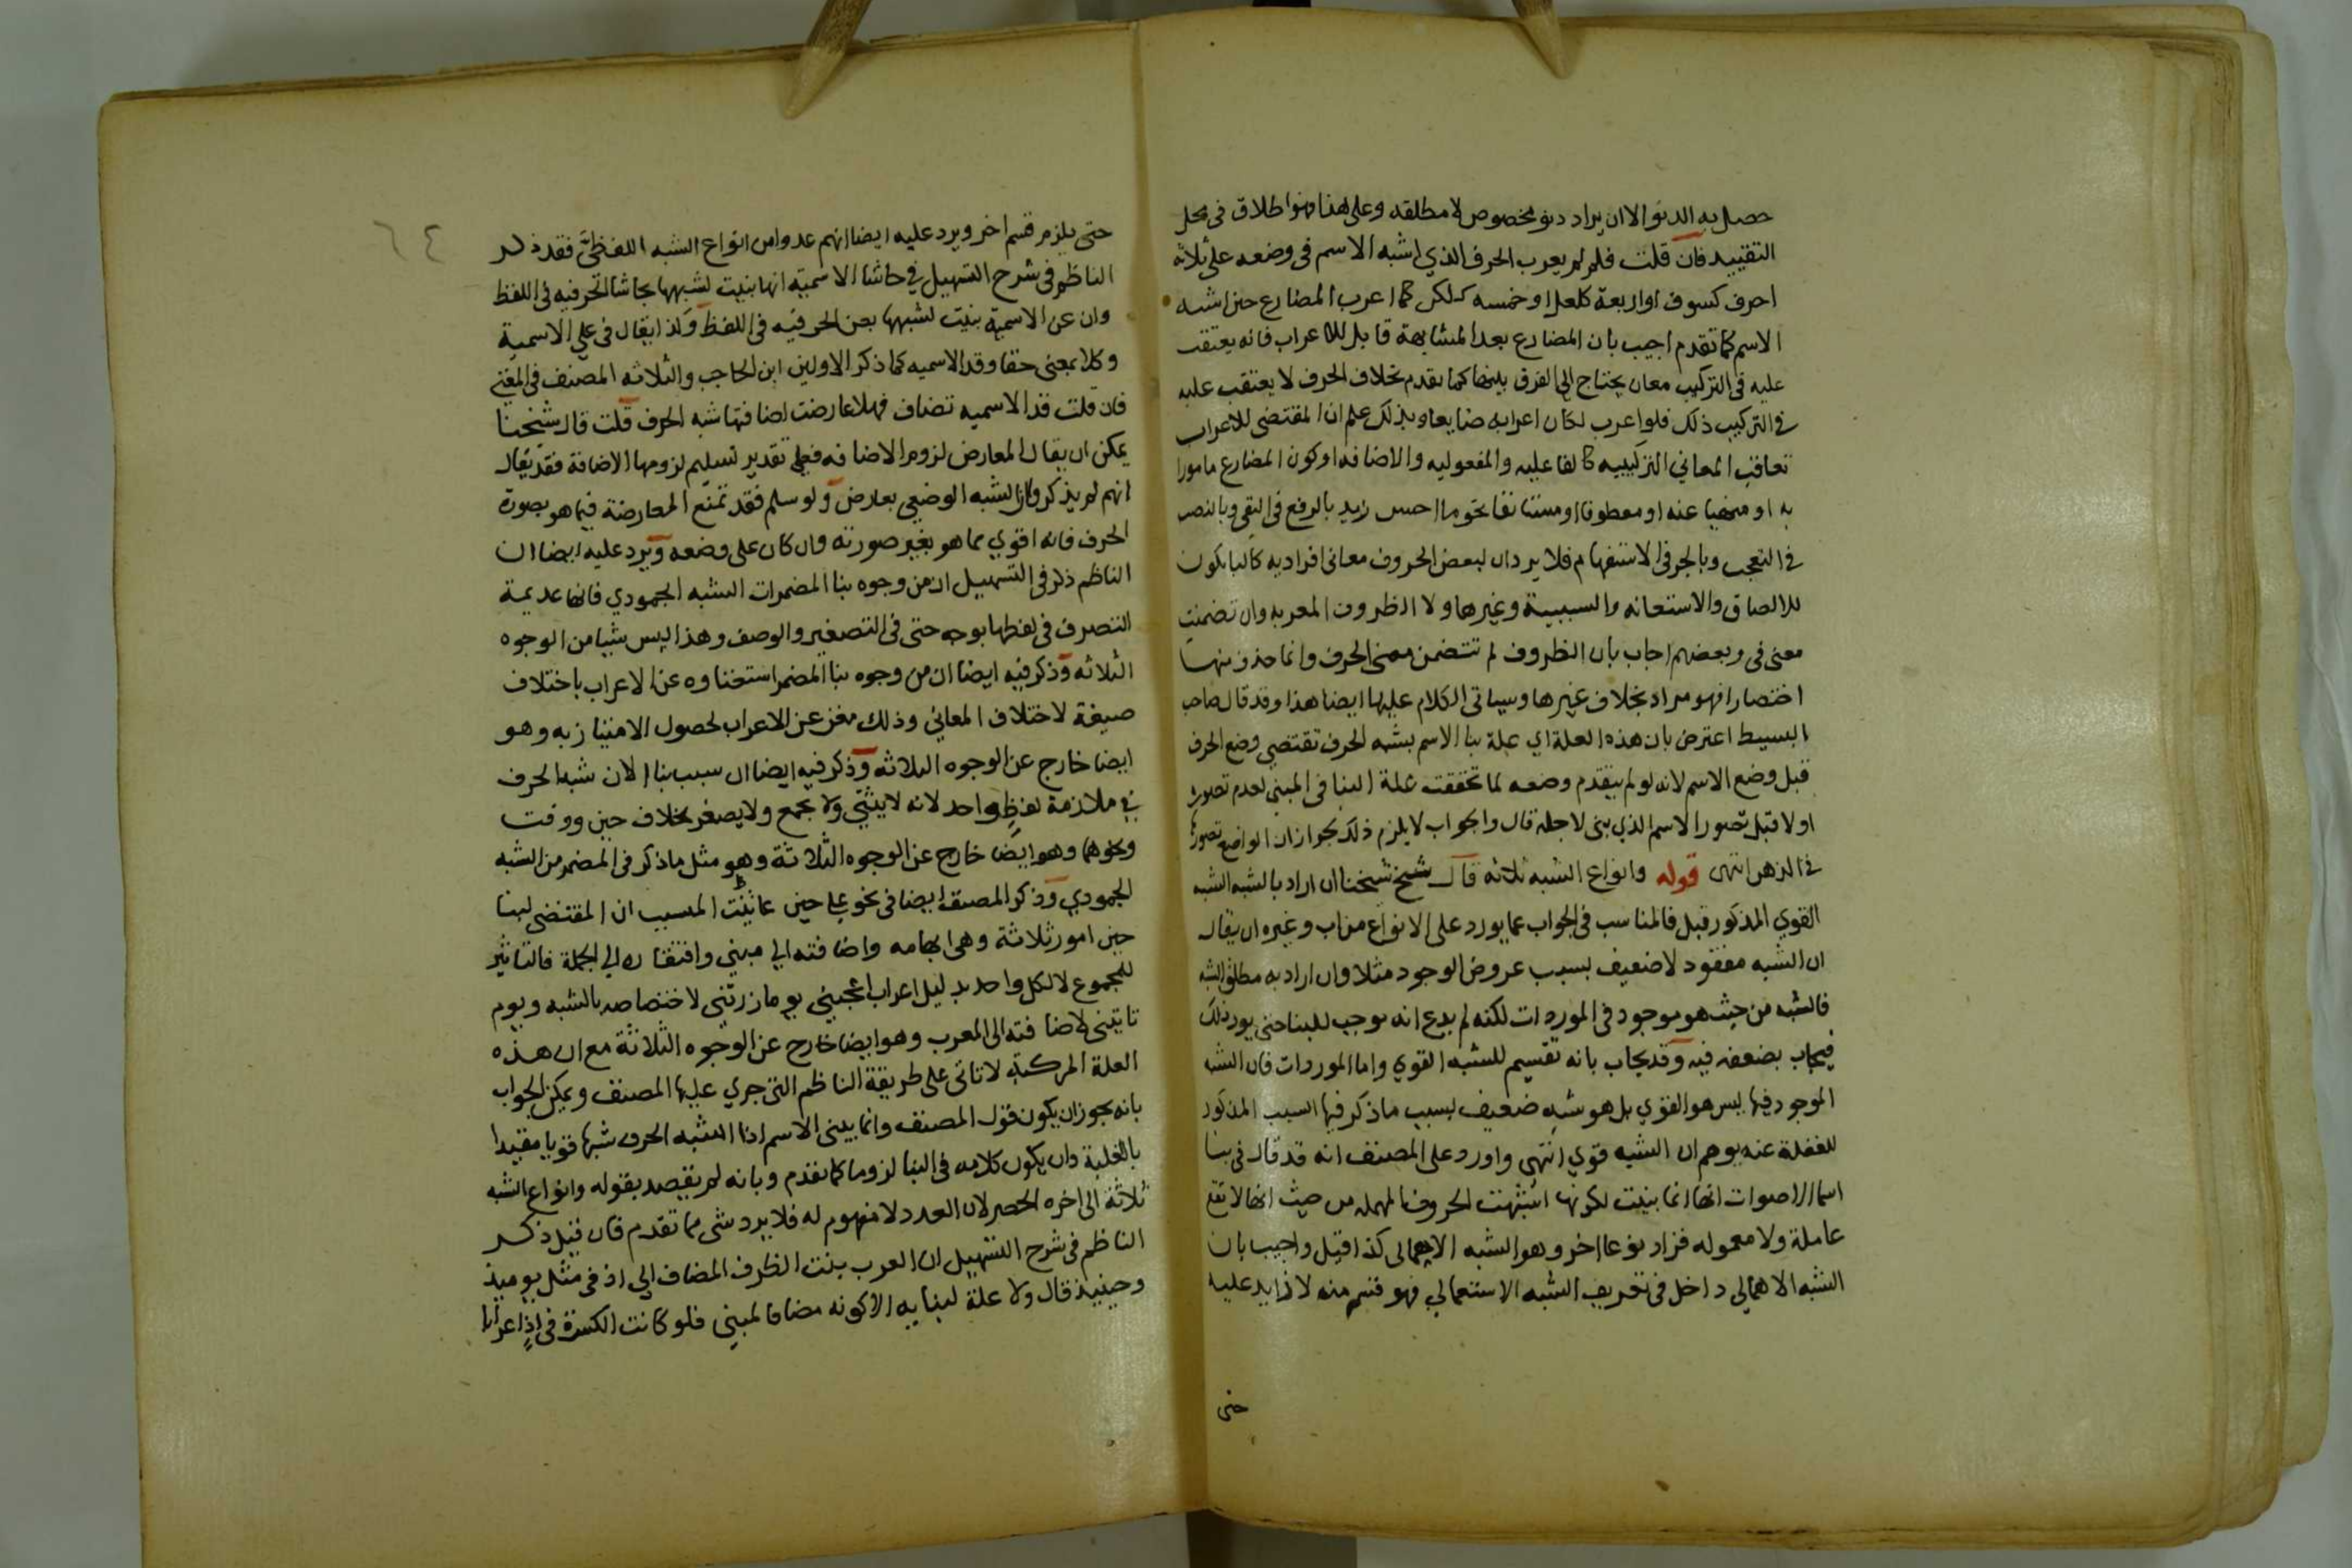 حصل به الدنو الا ان يراد دنو مخصوص لا مطلقه وعلى هذا فهو اطلاق فى محل
التقييد فان قلت فلم لم يعرب الحرف الذي اشبه الاسم فى وضعه على ثلاثة
احرف كسوف او اربعة كلعل او خمسه كلكن كما اعرب المضارع حين اشبه
الاسم كما تقدم اجيب بان المضارع بعد المشابهة قابل للاعراب فانه يعتقب
عليه فى التركيب معان يحتاج الى الفرق بينها كما تقدم بخلاف الحرف لا يعتقب عليه
في التركيب ذلك فلو اعرب لكان اعرابه ضايعا وبذلك علم ان المقتضى للاعراب
تعاقب المعاني التركيبيه كالفاعليه والمفعوليه والاضافه او كون المضارع مامورا
به او منهيا عنه او معطوفا او مستانفا نحو ما احسن زيد بالرفع فى النفى وبالنصب
في التعجب وبالجر فى الاستفهام فلا يرد ان لبعض الحروف معانى افراديه كالبا يكون
للالصاق والاستعانه والسببية وغيرها ولا الظروف المعربه وان تضمنت
معنى فى وبعضهم اجاب بان الظروف لم تتضمن معنى الحرف وانما حذف منها
اختصارا فهو مراد بخلاف غيرها وسياتى الكلام عليها ايضا هذا وقد قال صاحب
البسيط اعترض بان هذه العلة اي علة بنا الاسم بشبه الحرف تقتضي وضع الحرف
قبل وضع الاسم لانه لو لم يتقدم وضعه لما تحققت علة البنا فى المبنى لعدم تصورها
اولا قبل تصور الاسم الذي بنى لاجله قال والجواب لا يلزم ذلك لجواز ان الواضع تصورها
في الذهن انتهى قوله وانواع الشبه ثلاثة قال شيخ شيخنا ان اراد بالشبه الشبه
القوي المذكور قبل فالمناسب فى الجواب عما يورد على الانواع من اب وغيره ان يقال
ان الشبه مفقود لا ضعيف بسبب عروض الوجود مثلا وان اراد به مطلق الشبه
فالشبه من حيث هو موجود فى الموردات لكنه لم يدع انه موجب للبنا حتى يورد ذلك
فيجاب بضعفه فيه وقد يجاب بانه تقسيم للشبه القوي واما الموردات فان الشبه
الموجود فيها ليس هو القوي بل هو شبه ضعيف بسبب ما ذكر فيها السبب المذكور
للغفلة عنه يوهم ان الشبه قوي انتهى واورد على المصنف انه قد قال فى بنا
اسما الاصوات انها انما بنيت لكونها اشبهت الحروف المهمله من حيث انها لا تقع
عاملة ولا معموله فزاد نوعا اخر وهو الشبه الاهمالى كذا قيل واجيب بان
الشبه الاهمالى داخل فى تعريف الشبه الاستعمالي فهو قسم منه لا زايد عليه
حتى
٦٤
حتى يلزم قسم اخر ويرد عليه ايضا انهم عدوا من انواع الشبه اللفظيَّ فقد ذكر
الناظم فى شرح التسهيل في حاشا الاسمية انها بنيت لشبهها بحاشا الحرفيه فى اللفظ
وان عن الاسمية بنيت لشبهها بعن الحرفيه فى اللفظ وكذا يقال فى على الاسمية
وكلا بمعنى حقا وقد الاسميه كما ذكر الاولين ابن الحاجب والثلاثه المصنف فى المغنى
فان قلت قد الاسميه تضاف فهلا عارضت اضافتها شبه الحرف قلت قال شيخنا
يمكن ان يقال المعارض لزوم الاضافه فعلى تقدير تسليم لزومها الاضافة فقد يقال
انهم لم يذكروا ان الشبه الوضعي يعارض ولو سلم فقد تمنع المعارضة فيما هو بصورة
الحرف فانه اقوي مما هو بغير صورته وان كان على وضعه ويرد عليه ايضا ان
الناظم ذكر فى التسهيل ان من وجوه بنا المضمرات الشبه الجمودي فانها عديمة
التصرف فى لفظها بوجه حتى فى التصغير والوصف وهذا ليس شيا من الوجوه
الثلاثه وذكر فيه ايضا ان من وجوه بنا المضمر استغناوه عن الاعراب باختلاف
صيغة لاختلاف المعاني وذلك مغن عن الاعراب لحصول الامتياز به وهو
ايضا خارج عن الوجوه الثلاثه وذكر فيه ايضا ان سبب بنا الان شبه الحرف
في ملازمة لفظ واحد لانه لا يثنّى ولا يجمع ولا يصغر بخلاف حين ووقت
ونحوهما وهو ايضا خارج عن الوجوه الثلاثة وهو مثل ما ذكر فى المضمر من الشبه
الجمودي وذكر المصنف ايضا فى نحو على حين عاتبت المشيب ان المقتضى لبنا
حين امور ثلاثة وهى ابهامه واضافته الي مبني وافتقاره الي الجملة فالتاثير
للمجموع لا لكل واحد بدليل اعراب اعجبني يوما زرتنى لاختصاصه بالشبه ويوم
تاتينى لاضافته الى المعرب وهو ايضا خارج عن الوجوه الثلاثة مع ان هذه
العلة المركبة لا تاتى على طريقة الناظم التى جري عليها المصنف ويمكن الجواب
بانه يجوز ان يكون قول المصنف وانما يبنى الاسم اذا اشبه الحرف شبها قويا مقيدا
بالغلبة وان يكون كلامه فى البنا لزوما كما تقدم وبانه لم يقصد بقوله وانواع الشبه
ثلاثة الى اخره الحصر لان العدد لا مفهوم له فلا يرد شى مما تقدم فان قيل ذكر
الناظم فى شرح التسهيل ان العرب بنت الظرف المضاف الي اذ فى مثل يوميذ
وحينيذ قال ولا علة لبنايه الا كونه مضافا لمبني فلو كانت الكسرة فى اذ اعرابا